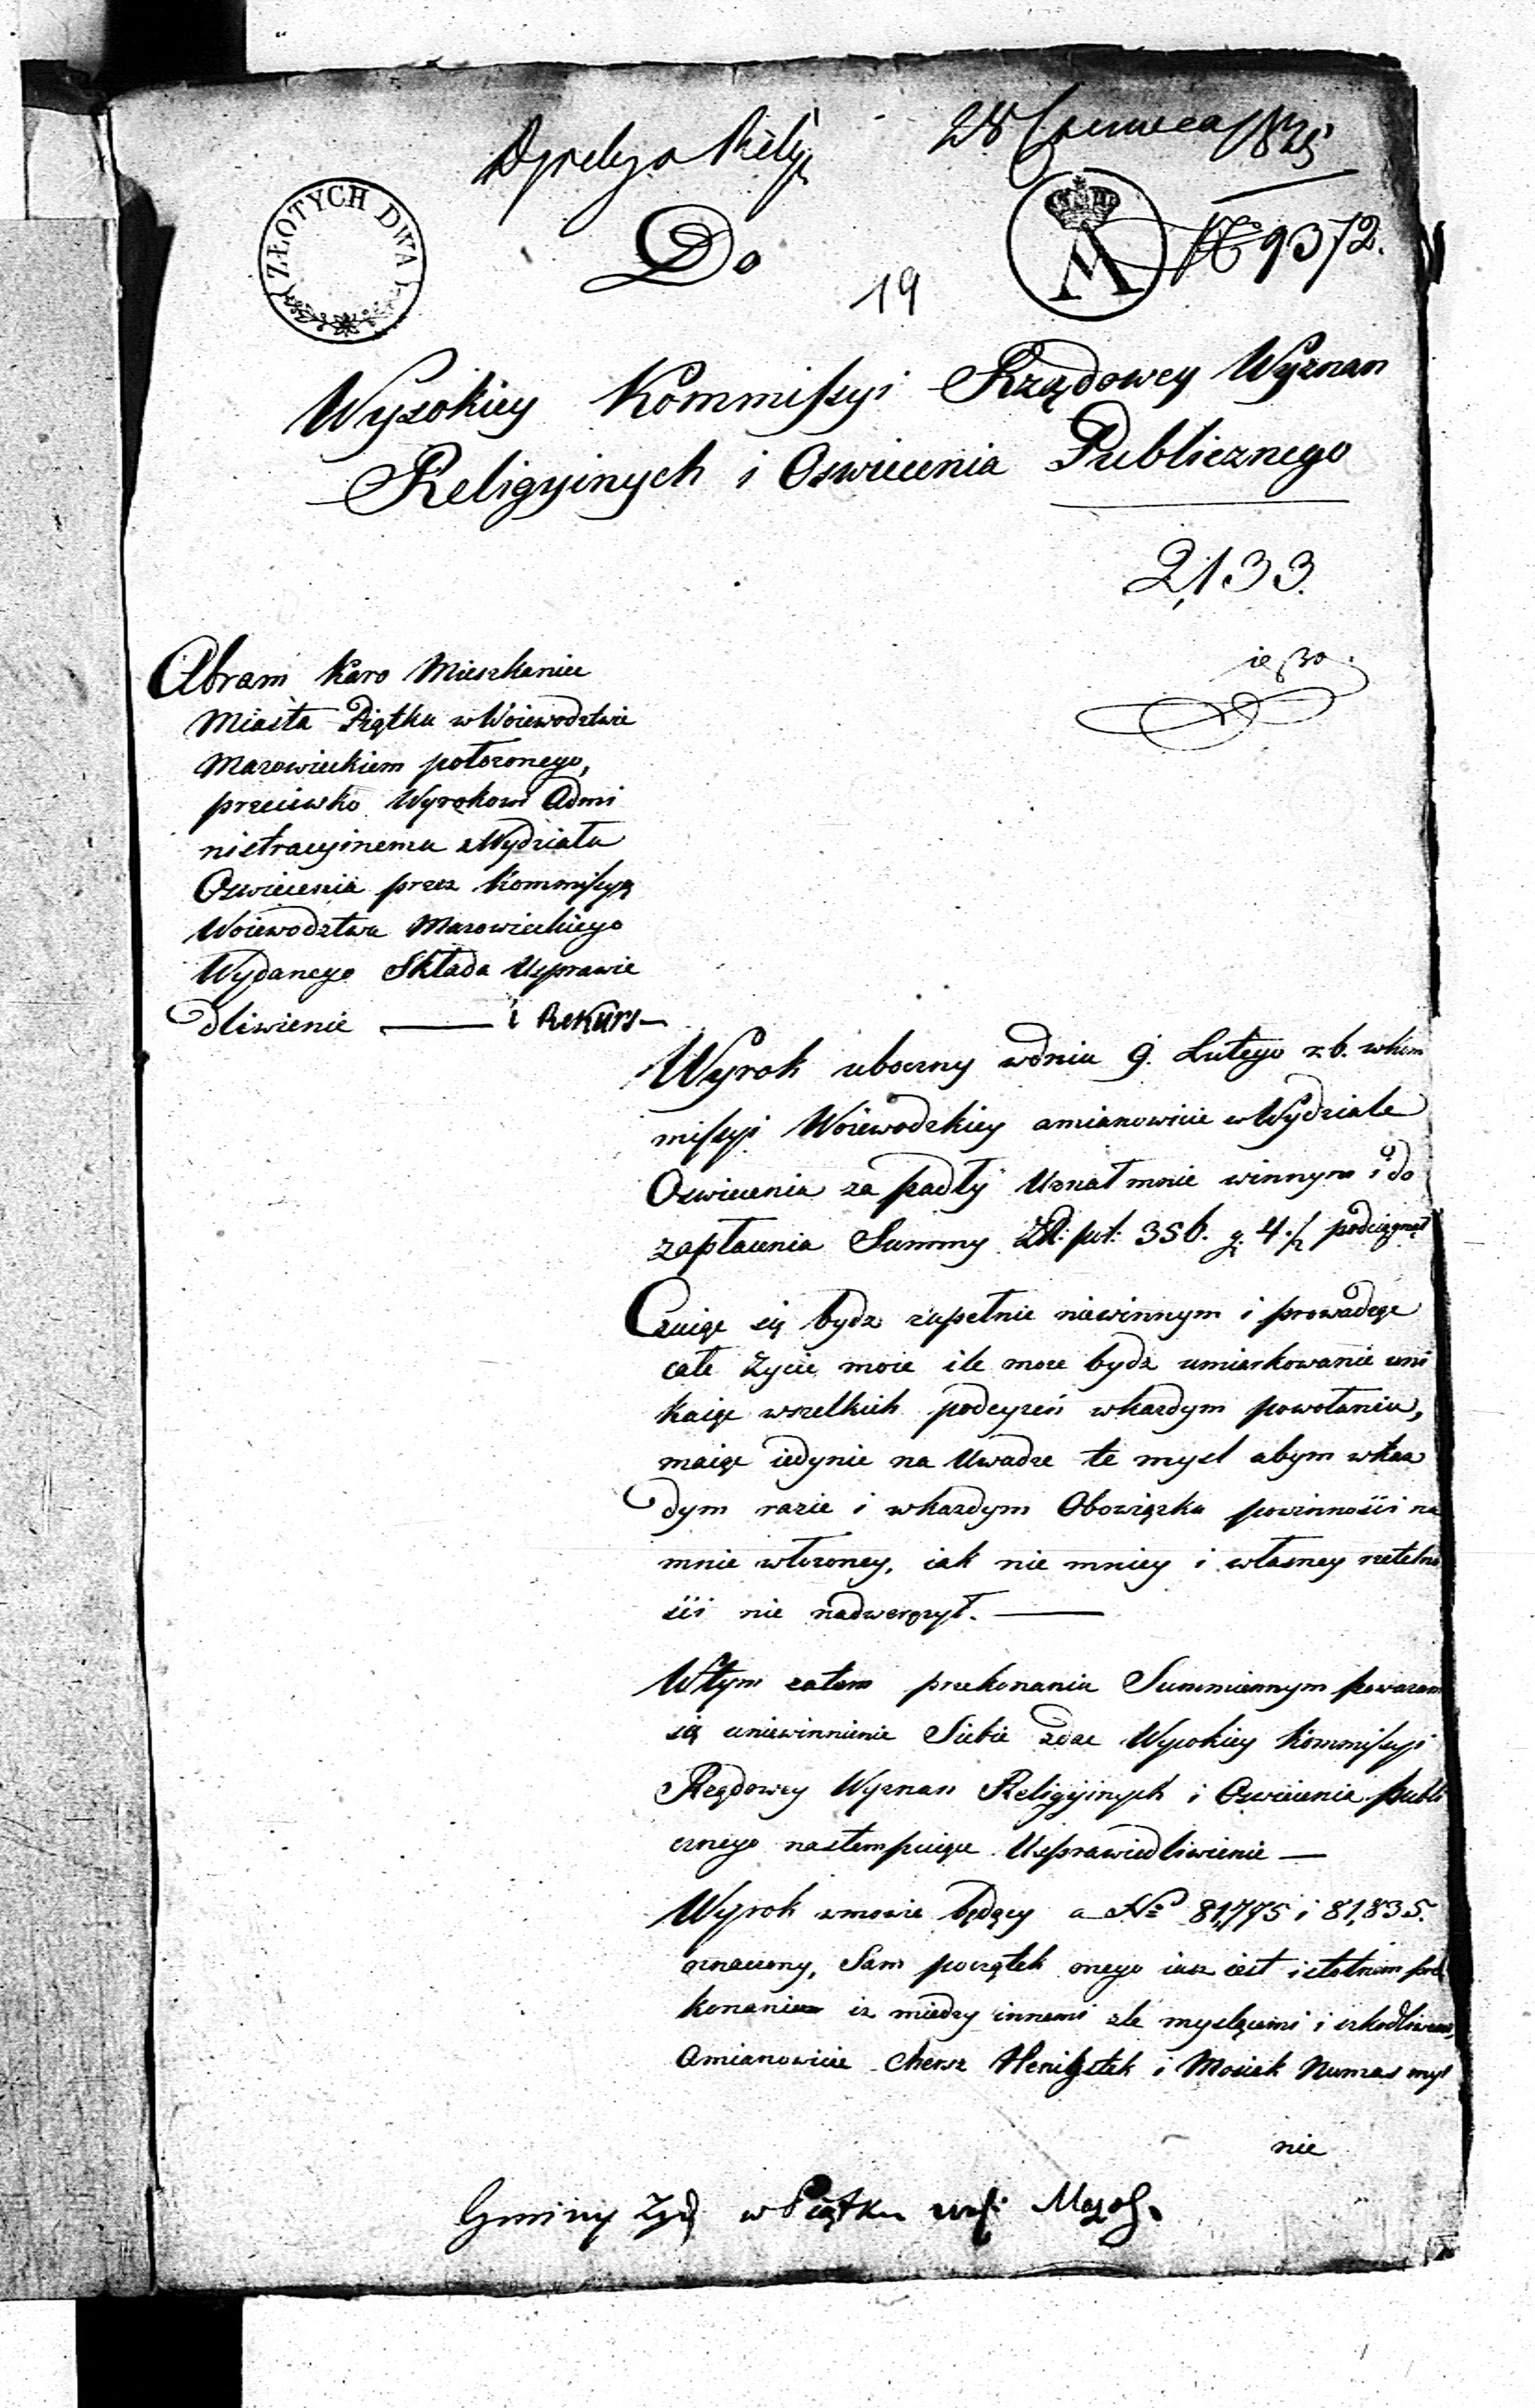 28 Czerwca 1825
ZŁOTYCH DWA
Do
No 9372.
19
Wysokiey Kommissyi Rządowey Wyznan
Religyinych i Oswiecenia Publicznego
2,133.
Abram Karo Mieszkaniec
Miasta Piątku w Woiewodztwie
Mazowieckiem położonego,
przeciwko Wyrokowi Admi
nistracyinemu z Wydziału
Oswiecenia przez Kommissyą
Woiewodztwa Mazowieckiego
Wydanego Składa Usprawie
dliwienie — i Rekurs —
Wyrok uboczny w dniu 9. Lutego r. b. w Kom
missyi Woiewodzkiey a mianowicie w Wydziale
Oswiecenia zapadły Uznał mnie winnym i do
zapłacenia Summy Zł: pol: 356. g. 4 1/2 podciągnął
Czuiąc się bydz zupełnie niewinnym i prowadząc
całe życie moie ile może bydz umiarkowanie uni
kaiąc wszelkich podeyzeń w kazdym powołaniu,
maiąc iedynie na Uwadze te mysl abym w kaz
dym razie i w kazdym Obowiązku powinności na
mnie włozoney, iak nie mniey i własney rzetelno
ści nie nadweręzył. —
W tym zatem przekonaniu Summiennym powazam
się uniewinnienie Siebie zdac Wysokiey Kommissyi
Rządowey Wyznan Religyinych i Oswiecenia publi
cznego nastempuiące Usprawiedliwienie —
Wyrok w mowie będący a No 81,775 i 81,835.
oznaczony, Sam początek onego iuz iest istotnem prze
konaniem iz miedzy innemi zle myslącemi i szkodliwemi,
a mianowicie Chersz i Mosiek Numas myl
nie
Gminy Żyd w Piątku